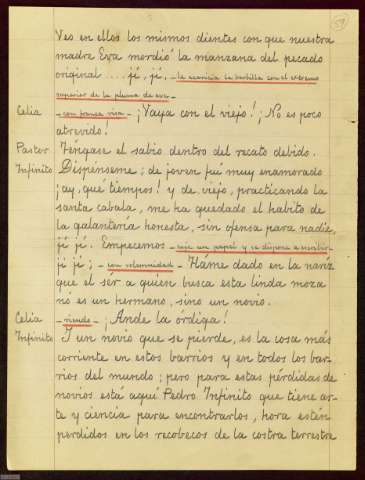 59
Veo en ellos los mismos dientes con que nuestra
madre Eva mordió la manzana del pecado
original .... jí, jí. - le acaricia la barbilla con el extremo
superior de la pluma de ave -
Celia - con franca risa - ¡Vaya con el viejo! ¡No es poco
atrevido!
Pastor Téngase el sabio dentro del recato debido.
Infinito Dispénseme; de joven fuí muy enamorado
¡ay, qué tiempos! y de viejo, practicando la
santa cabala, me ha quedado el habito de
la galantería honesta, sin ofensa para nadie,
jí jí. Empecemos - coje un papel y se dispone a escribir -
jí jí; - con solemnidad - Háme dado en la naríz
que el sér a quien busca esta linda moza
no es un hermano, sino un novio.
Celia - riendo - ¡Ande la órdiga!
Infinito Y un novio que se pierde, es la cosa más
corriente en estos barrios y en todos los bar-
rios del mundo; pero para estas pérdidas de
novios está aquí Pedro Infinito que tiene ar-
te y ciencia para encontrarlos, hora estén
perdidos en los recobecos de la costra terrestre